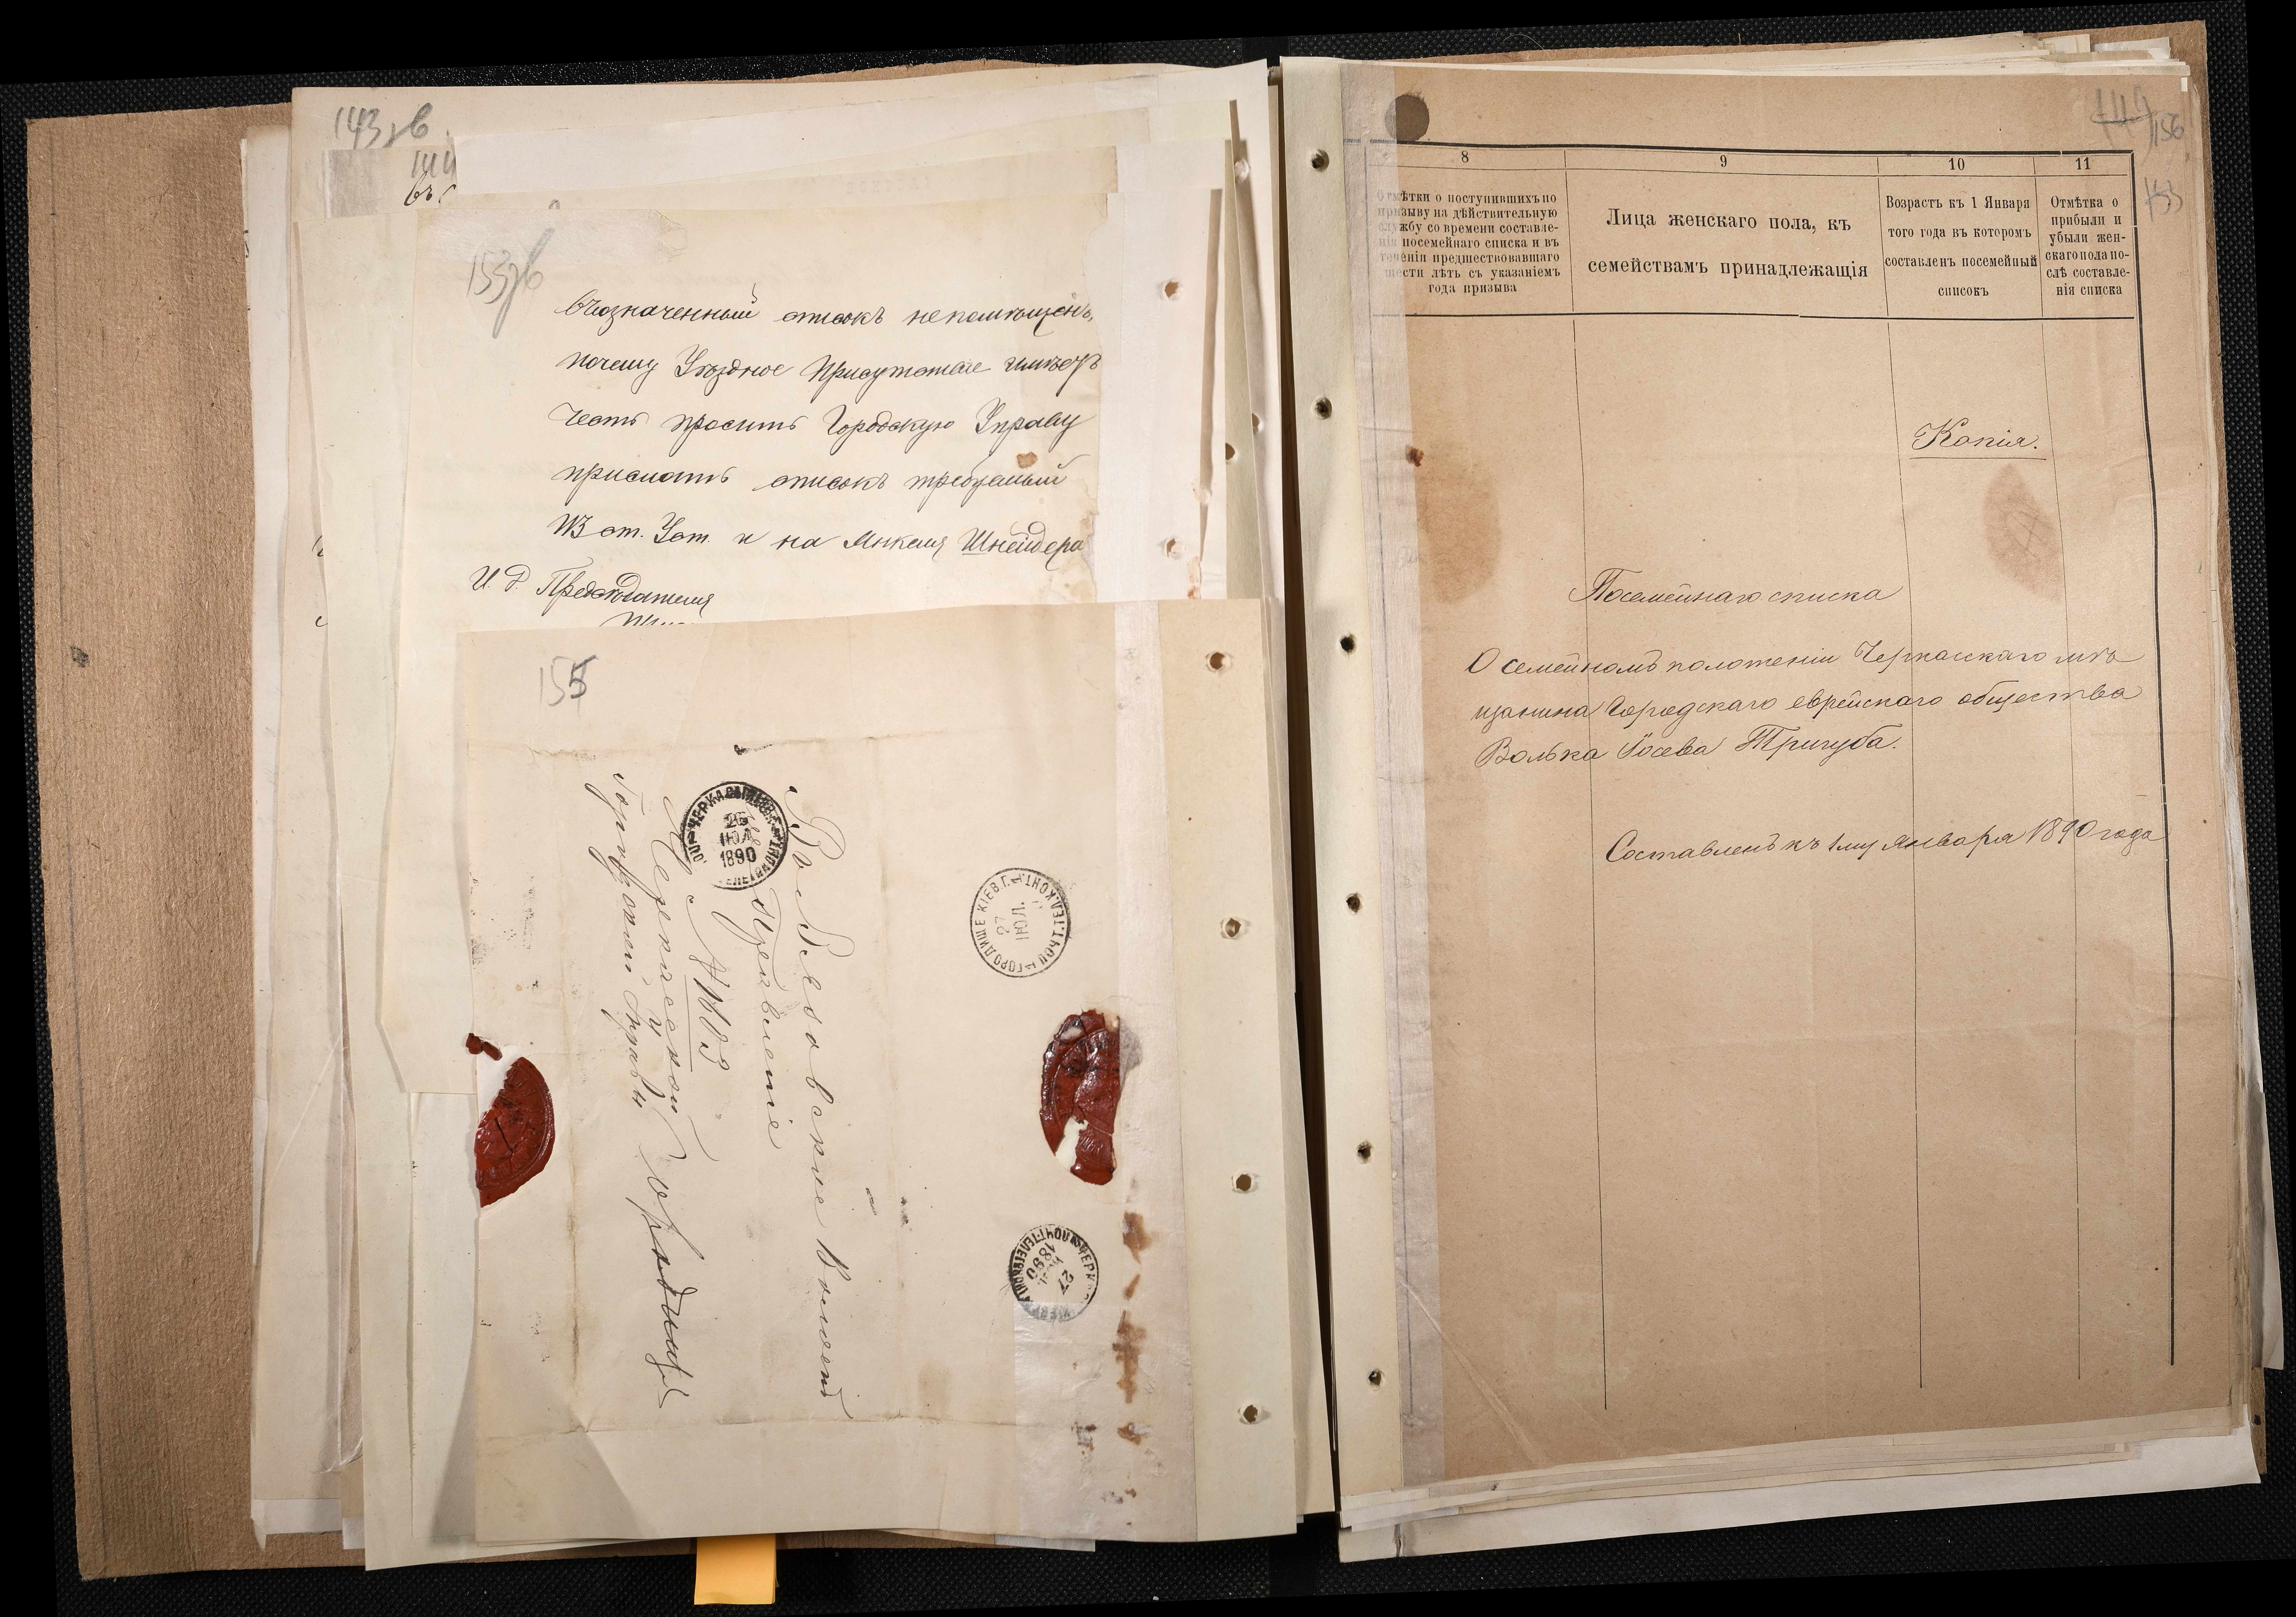 143 об
144
въ с
153 об
вчозначенный списокъ непомѣщенъ,
почему Уѣздное Присутствіе имѣетъ
честь просить Городскую Управу
прислать списокъ требуемый
ст. Уст. и на Янкеля Шнейдера
И. д. Предсѣдателя
155
Въ Рассавское Волостн
Правленіе
въ г. Городище
Черкасской
Городской Управы
ЧЕРКАСЫ
26
ІЮЛ
1890
ГОРОДИЩЕ КІЕВ. Г. ПОЧТ. ТЕЛ. КОНТ.
27
ІЮЛ.
ЧЕРК ПОЧТ. ТЕЛЕГР.
27
1890
149 156
153
8
9
10
11
Отмѣтки о поступившихъ по
призыву на дѣйствительную
службу со времени составле-
нія посемейнаго списка и въ
теченіи предшествовавшаго
шести лѣтъ съ указаніемъ
года призыва
Лица женскаго пола, къ
семействамъ принадлежащія
Возрастъ къ 1 Января
того года въ которомъ
составленъ посемейный
списокъ
Отмѣтка о
прибыли и
убыли жен-
скаго пола по-
слѣ составле-
нія списка
Копія.
Посемейнаго списка
О семейномъ положеніи Черкасскаго мѣ
щанина Городскаго еврейскаго общества
Волька Іосева Тригуба.
Составленъ къ 1му Января 1890 года